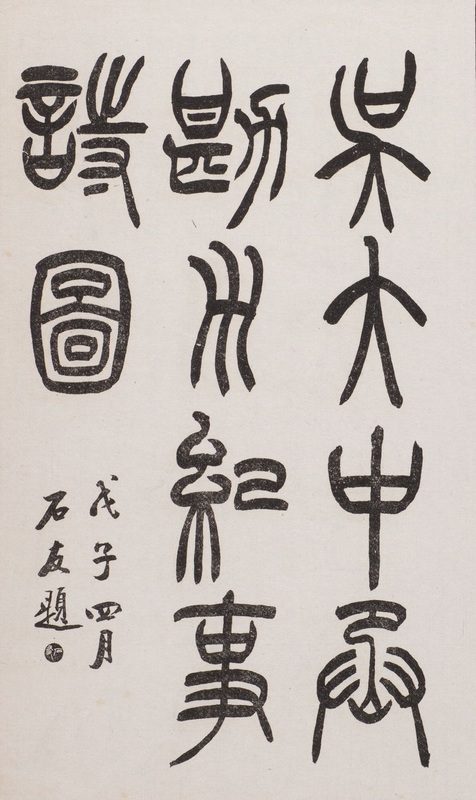 吳大中丞
勘水紀事
詩圖
戊子四月
石友題